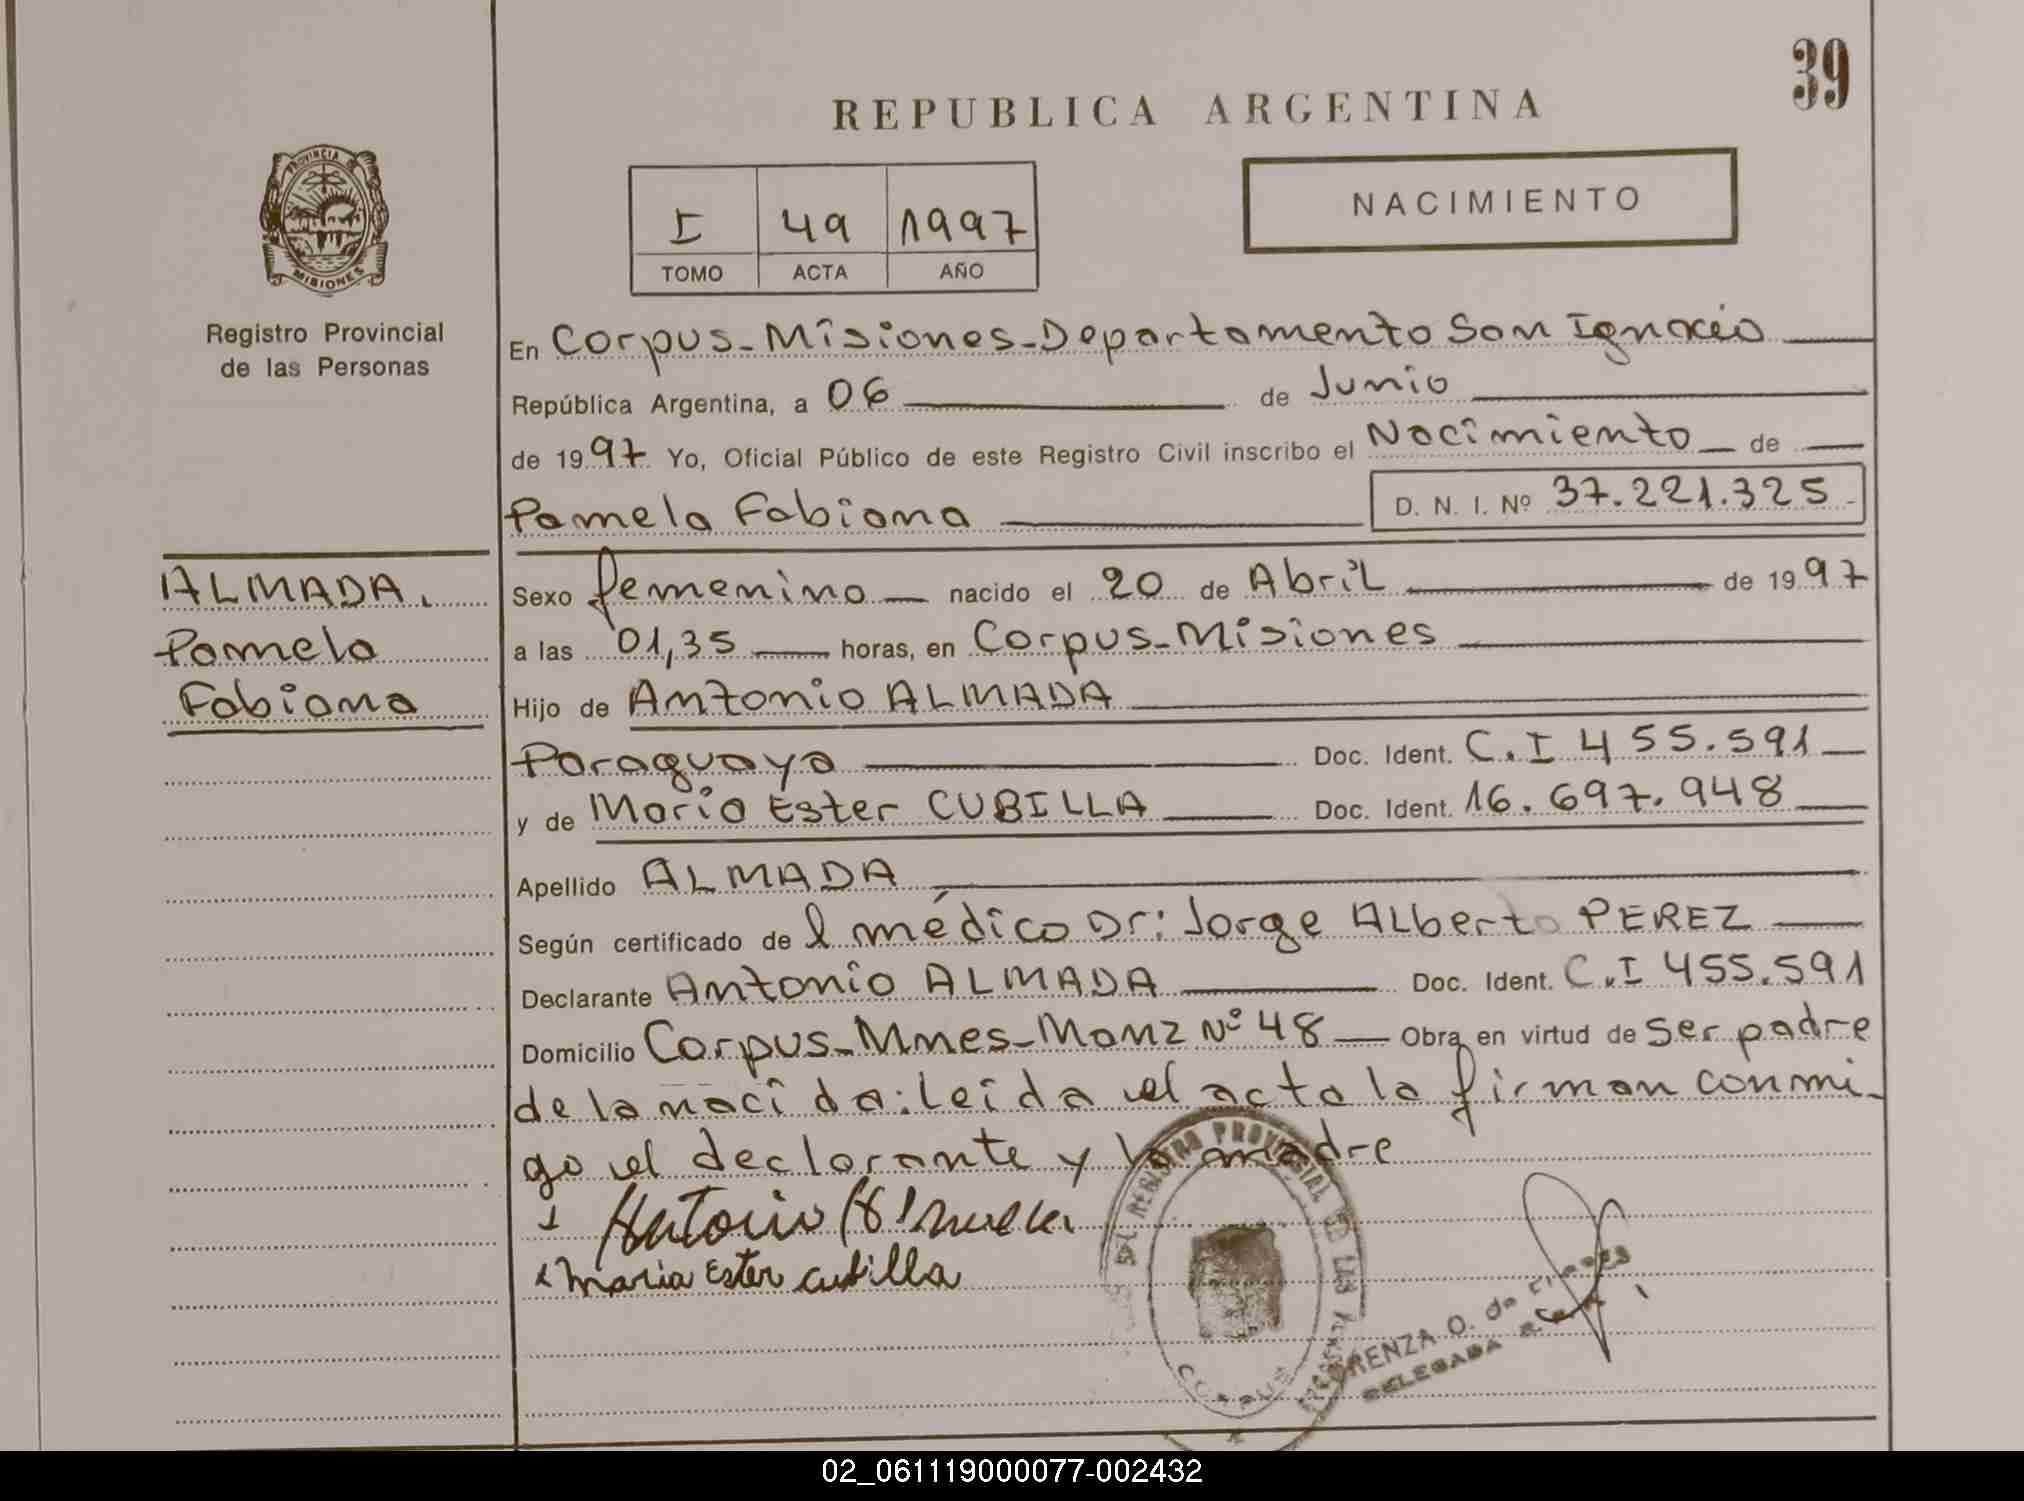 39
REPUBLICA ARGENTINA
PROVINCIA DE
MISIONES
Registro Provincial
de las Personas
I 49 1997
TOMO ACTA AÑO
NACIMIENTO
En Corpus-Misiones-Departamento San Ignacio
República Argentina, a 06 de Junio
de 1997 Yo, Oficial Público de este Registro Civil inscribo el Nacimiento de
Pamela Fabiana D. N. I. Nº 37.221.325
ALMADA.
Pamela
Fabiana
Sexo femenino nacido el 20 de Abril de 1997
a las 01,35 horas, en Corpus-Misiones
Hijo de Antonio ALMADA
Paraguaya Doc. Ident. C.I 455.591
y de Maria Ester CUBILLA Doc. Ident. 16.697.948
Apellido ALMADA
Según certificado del médico Dr: Jorge Alberto PEREZ
Declarante Antonio ALMADA Doc. Ident. C.I 455.591
Domicilio Corpus-Mnes-Manz Nº 48 Obra en virtud de ser padre
de la nacida: Leida el acta la firman conmi-
go el declarante y la madre
Antonio
Maria Ester cubilla
REGISTRO PROVINCIAL DE LAS
CORPUS
O. de
DELEGADA
02_061119000077-002432